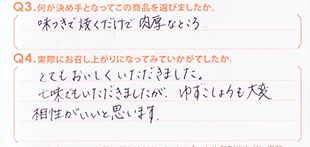 Q3.何が決め手となってこの商品を選びましたか。
味つきで焼くだけで肉厚なところ
Q4.実際にお召し上がりになってみていかがでしたか。
とてもおいしくいただきました。
七味でもいただきましたが、ゆずこしょうも大変
相性がいいと思います。